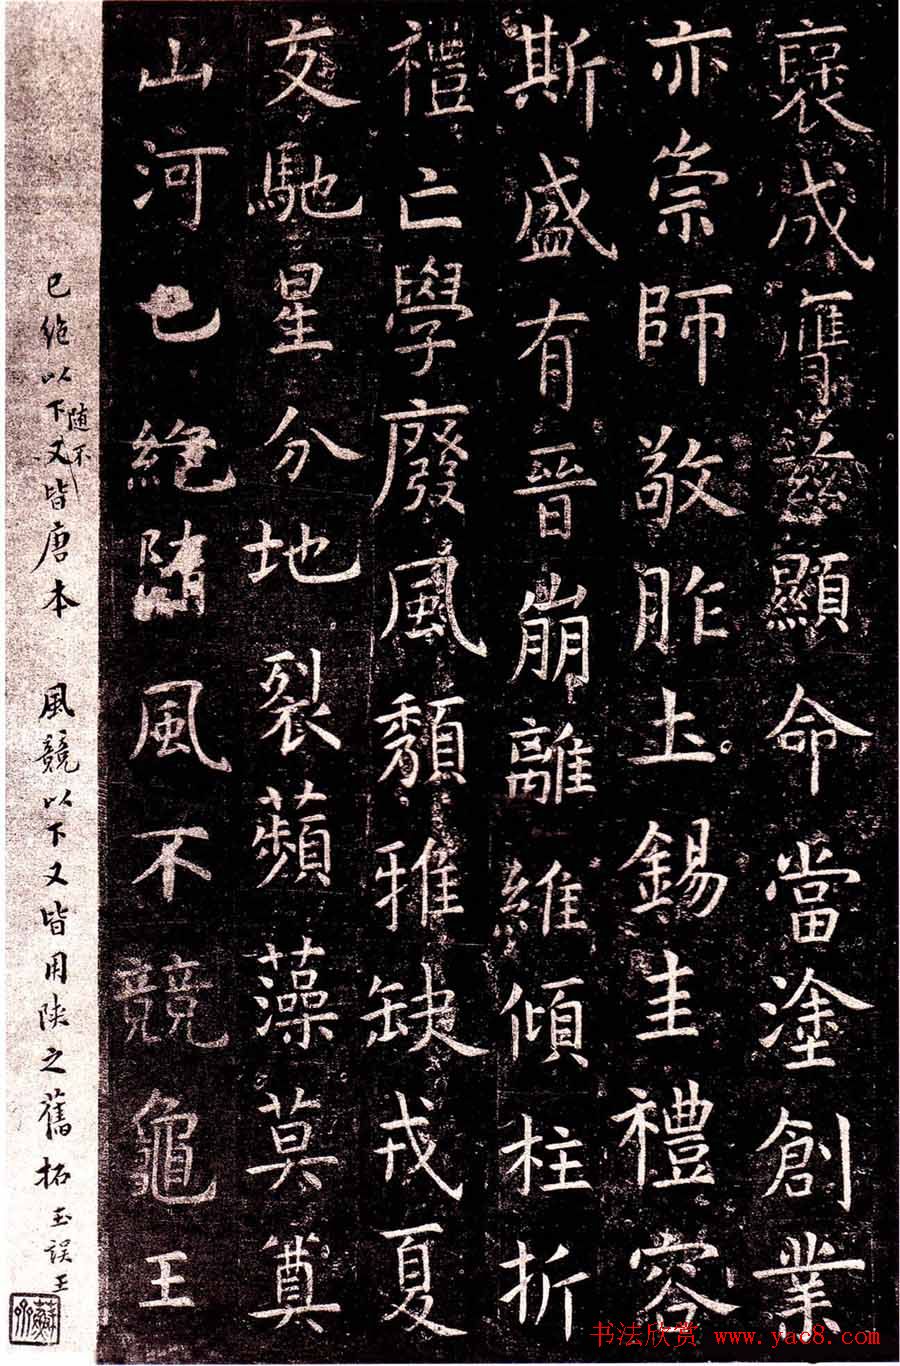 褒成膺兹顯命當塗創業
亦崇師敬胙土錫圭禮容
斯盛有晉崩離維傾柱折
禮亡學廢風頹雅缺戎夏
交馳星分地裂蘋藻莫奠
山河已絕隨風不競龜王
已絕以下隨不又皆唐本 風競以下又皆用陝之舊拓 玉誤王
书法欣赏 www.yac8.com